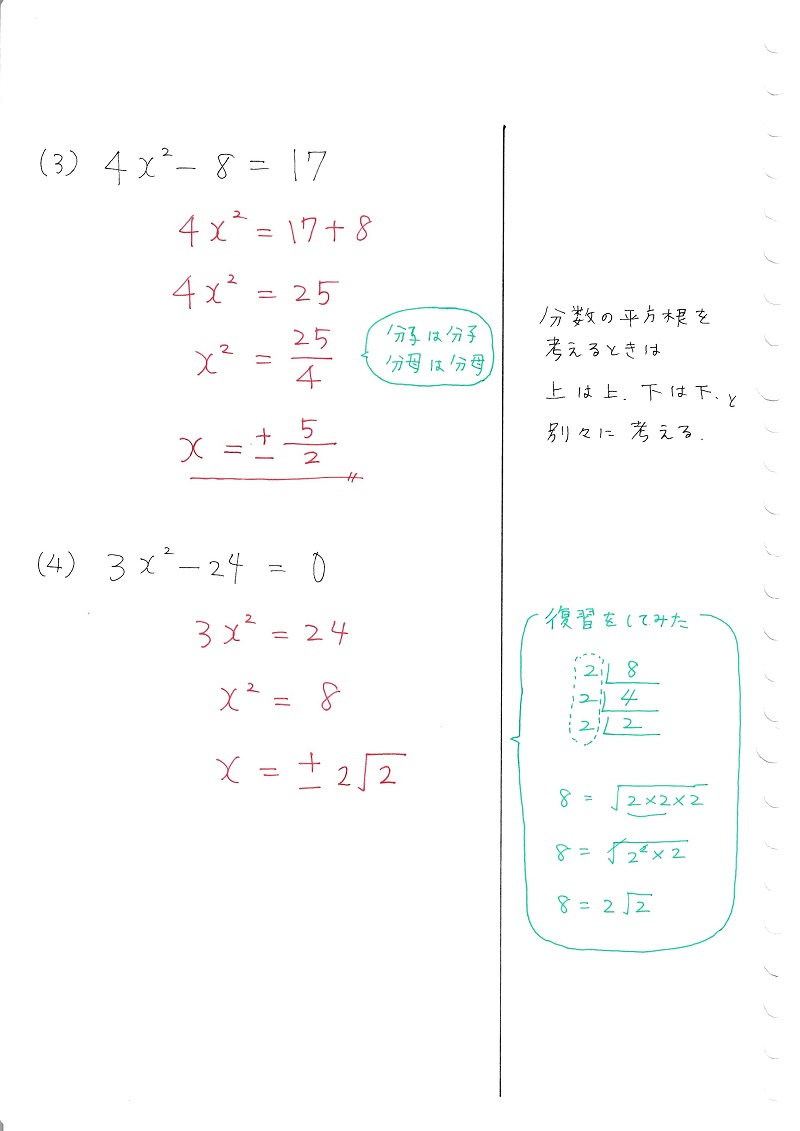 (3) 4x² - 8 = 17
4x² = 17 + 8
4x² = 25
x² = 25/4
分子は分子
分母は分母
x = ± 5/2
分数の平方根を
考えるときは
上は上. 下は下. と
別々に考える.
(4) 3x² - 24 = 0
3x² = 24
x² = 8
x = ± 2√2
復習をしてみた
2 | 8
2 | 4
2 | 2
8 = √(2×2×2)
8 = √(2²×2)
8 = 2√2